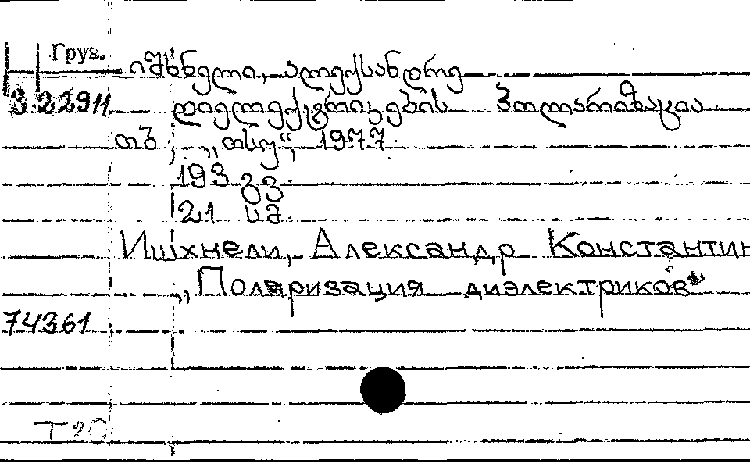 Груз.
იშხნელი, ალექსანდრე
3.22911 დიელექტრიკების პოლარიზაცია
თბ., „თსუ“, 1977.
193 გვ.
21 სმ.
Ишхнели, Александр Константин
„Поляризация диэлектриков“
74361
T20